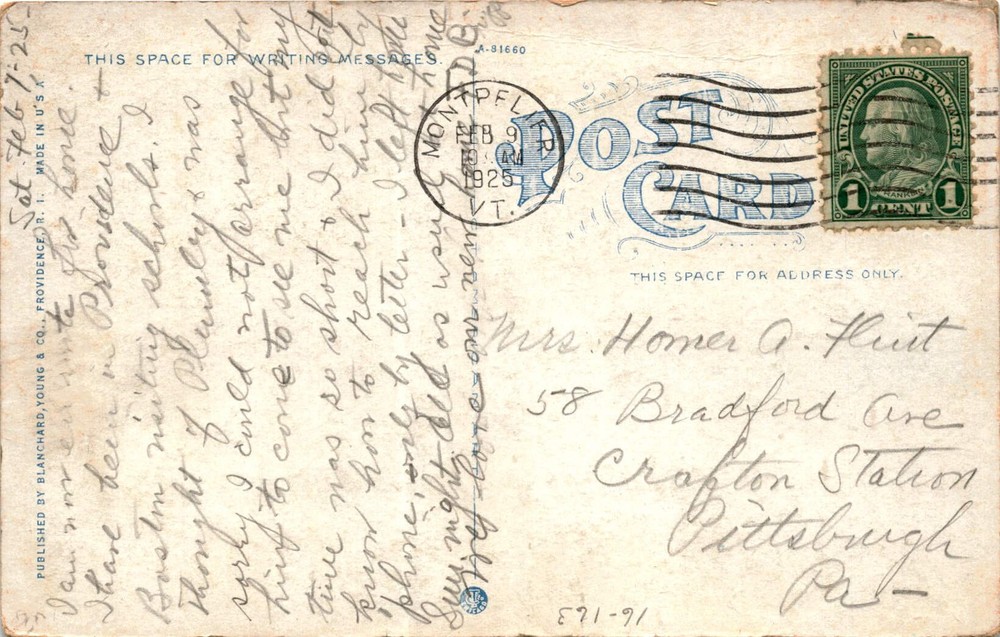 THIS SPACE FOR WRITING MESSAGES.
A-81660
PUBLISHED BY BLANCHARD, YOUNG & CO., PROVIDENCE, R. I. MADE IN U S A
Sat. Feb 7-25
I am now en route for home.
I have been in Providence &
Boston visiting schools. I
thought of Plumley & was
sorry I could not arrange for
him to come to see me but my
time was so short & I did not
know how to reach him by
'phone, only by letter - I left home
Sun. night
as usual
home
MONTPELIER
FEB 9
1925
VT.
POST
CARD
UNITED STATES POSTAGE
FRANKLIN
1 CENT 1
THIS SPACE FOR ADDRESS ONLY.
Mrs. Homer A. Flint
58 Bradford Ave
Crafton Station
Pittsburgh
Pa -
16-163